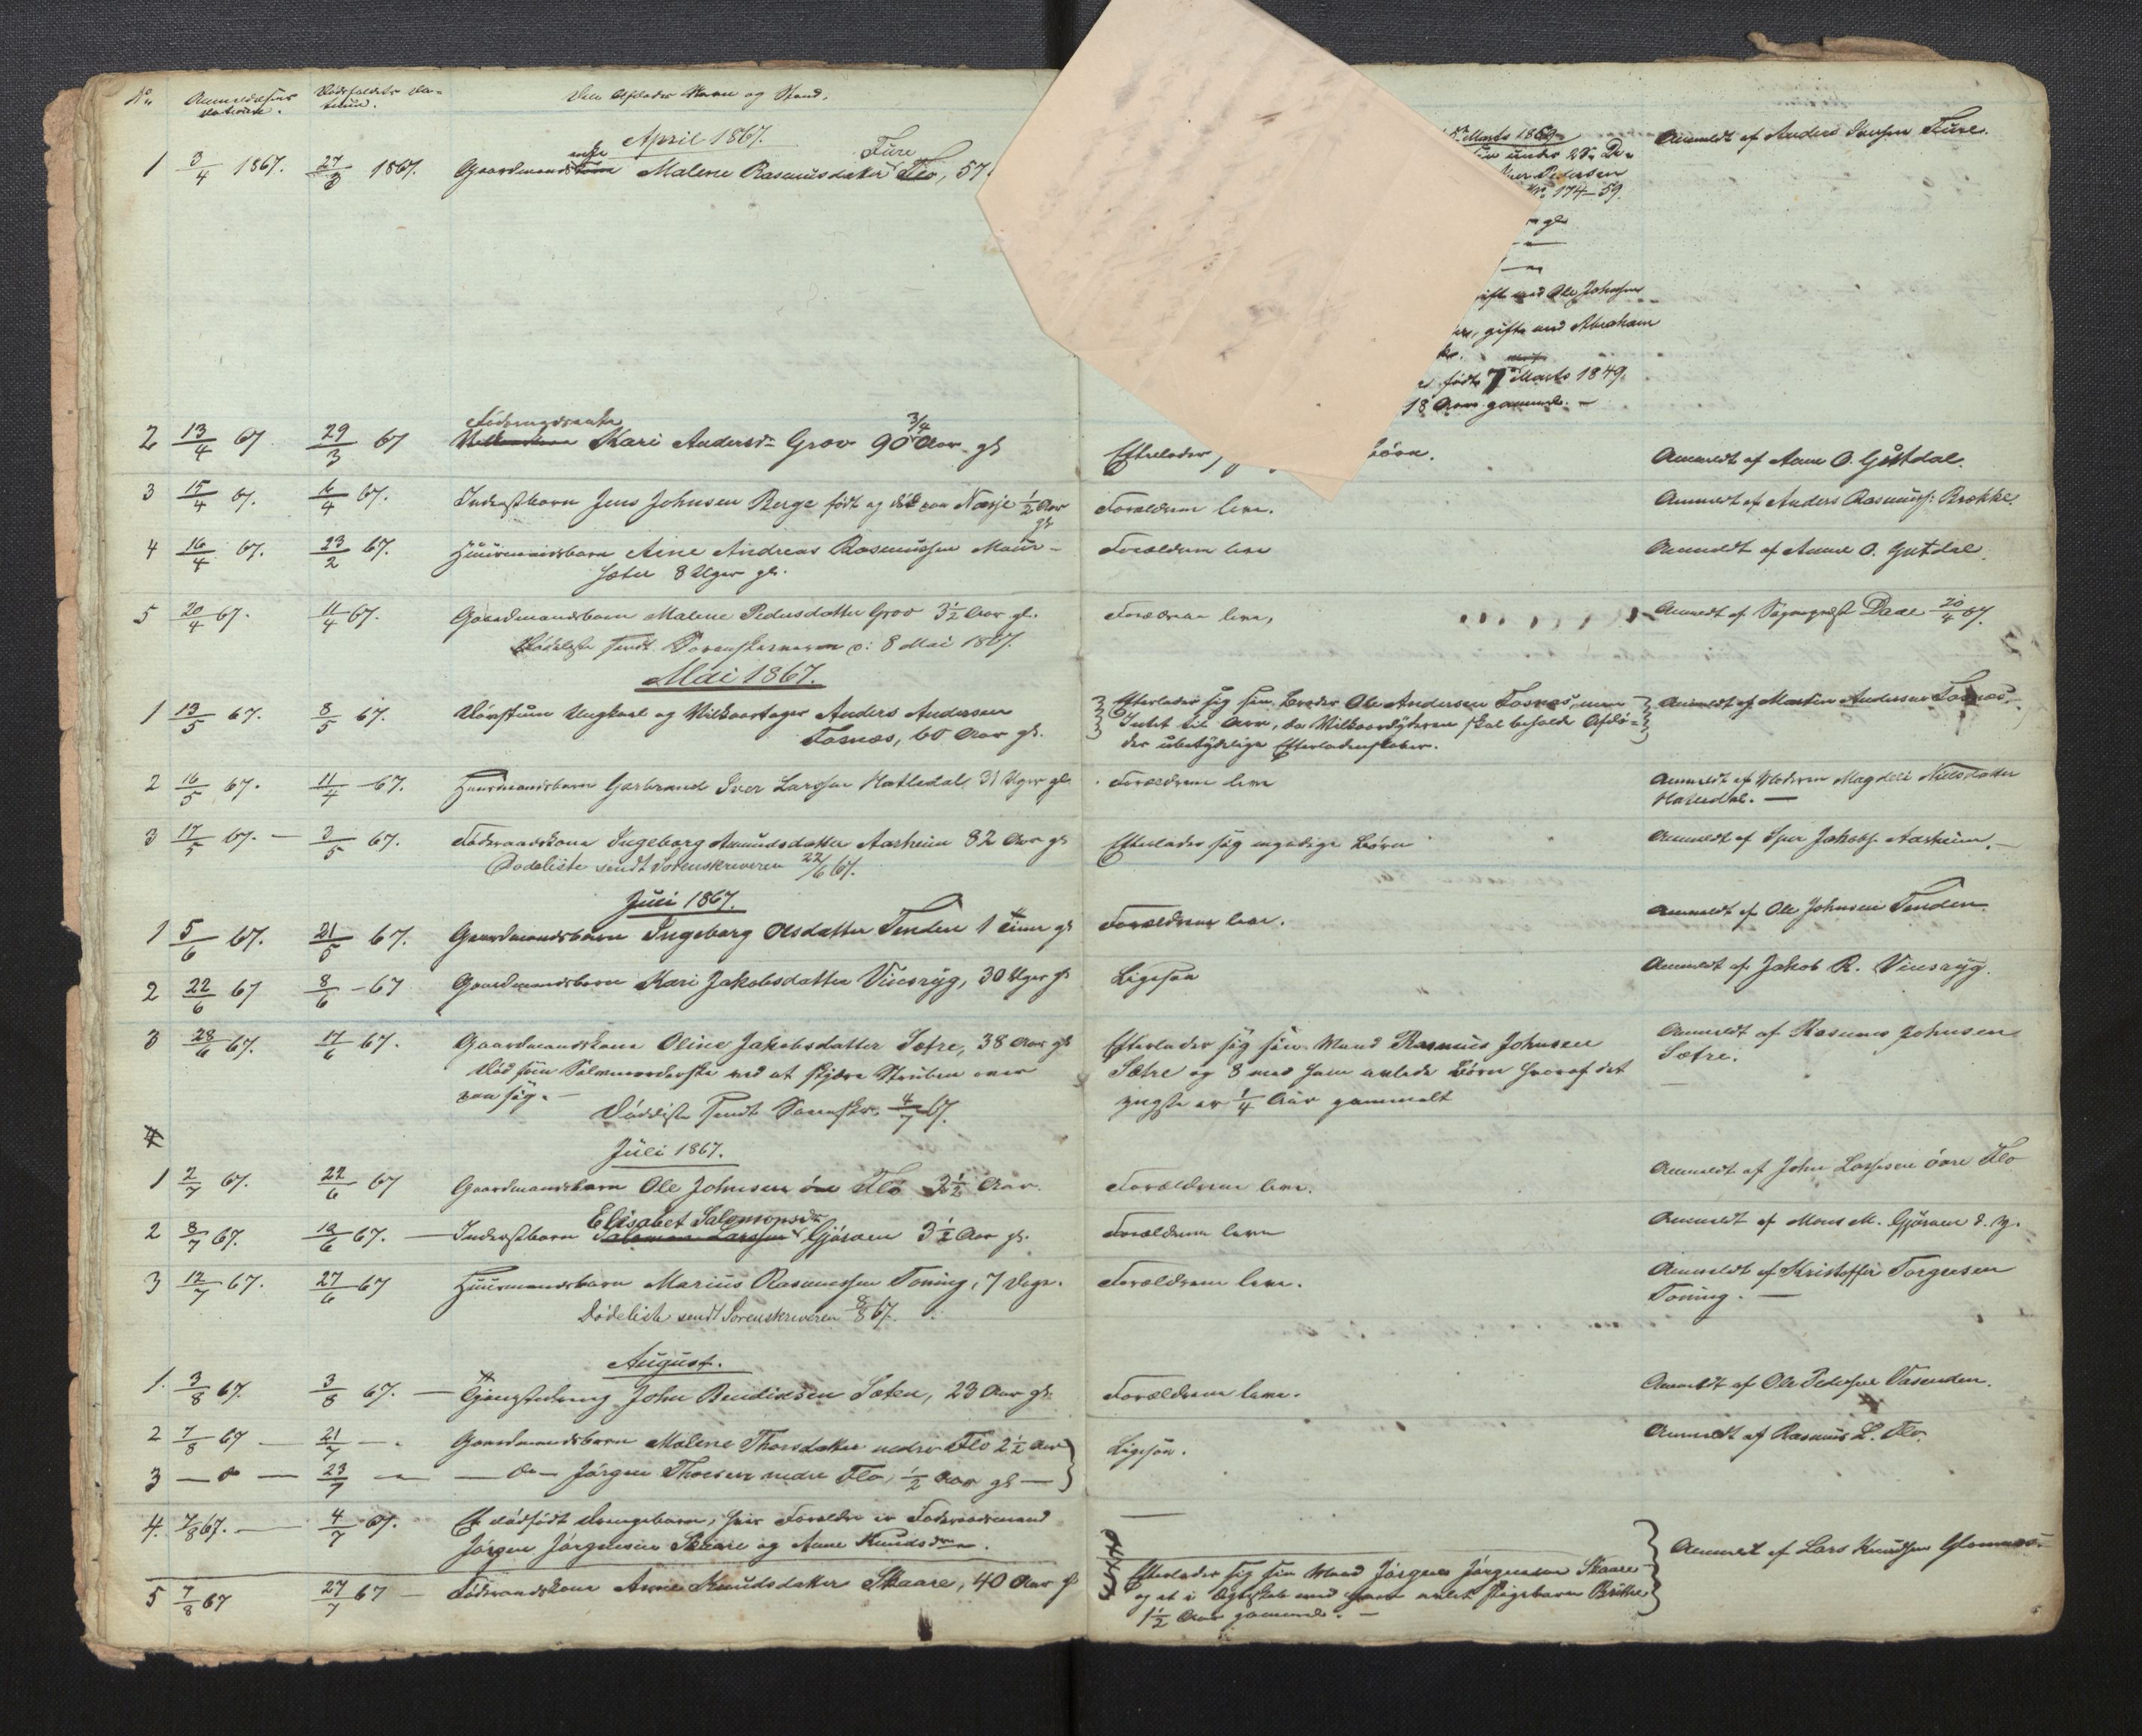 No. Anmeldelsens Datum. Dødsfaldets Datum. Den Afdødes Navn og Stand.
April 1867.
1 3/4 1867. 27/3 1867. Gaardmandsenke Malene Rasmusdatter Fure, 57
5te Marts 1859
under 25. De-
Iver Pedersen
No. 174-59.
gl.
gift med Ole Johnsen
gift med Abraham
født 7 Marts 1849.
18 Aar gammel. -
Anmeldt af Anders Fure.
2 13/4 67 29/3 67 Føderaadsenke Kari Andersdr Grov 90 3/4 Aar gl.
Efterlader Børn.
Anmeldt af Anne O. Gutdal.
3 15/4 67. 6/4 67. Inderstbarn Jens Johnsen Berge født og død paa Nesje 1/2 Aar gl.
Forældrene leve.
Anmeldt af Anders Rasmuss. Brekke.
4 16/4 67. 23/2 67. Huusmandsbarn Arne Andreas Rasmussen Maur-
sæter 8 Uger gl.
Forældrene leve
Anmeldt af Anne O. Gutdal.
5 20/4 67. 11/4 67. Gaardmandsbarn Malene Pedersdatter Grov 3 1/2 Aar gl.
Forældrene leve,
Anmeldt af Sogneprest Daae 20/4 67.
Dødsliste sendt Sorenskriveren d: 8 Mai 1867.
Mai 1867.
1 13/5 67. 8/5 67. Døvstum Ungkarl og Vilkaarstager Anders Andersen
Tosnæs, 60 Aar gl.
Efterlader sig sin Broder Ole Andersen Tosnæs, men
Intet til Arv, da Vilkaarsyderen skal beholde Afdø-
des ubetydelige Efterladenskaber.
Anmeldt af Martin Andersen Tosnæs.
2 16/5 67. 11/4 - 67. Huusmandsbarn Gerbrand Iver Larssen Hatledal 31 Uger gl.
Forældrene leve
Anmeldt af Moderen Magdeli Nielsdatter
Hatledal. -
3 17/5 67. - 3/5 67. Føderaadskone Ingeborg Amundsdatter Aarheim 82 Aar gl.
Efterlader sig myndige Børn
Anmeldt af Iver Jakobs. Aarheim. -
Dødsliste sendt Sorenskriveren 22/6 67.
Juni 1867.
1 5/6 67. 21/5 67. Gaardmandsbarn Ingeborg Olsdatter Tenden 1 Time gl.
Forældrene leve.
Anmeldt af Ole Johnsen Tenden.
2 22/6 67 8/6 - 67 Gaardmandsbarn Kari Jakobsdatter Vinsryg, 30 Uger gl.
Ligesaa
Anmeldt af Jakob R. Vinsryg.
3 28/6 67. 17/6 67. Gaardmandskone Oline Jakobsdatter Sætre, 38 Aar gl.
Død som Selvmorderske ved at skjære Struben over
paa sig. -
Efterlader sig sin Mand Rasmus Johnsen
Sætre og 8 med ham avlede Børn hvoraf det
yngste er 1/4 Aar gammelt
Anmeldt af Rasmus Johnsen
Sætre.
Dødsliste sendt Sorenskr. 4/7 67.
4
Juli 1867.
1 2/7 67. 22/6 67 Gaardmandsbarn Ole Johnsen øvre Flo 2 1/2 Aar.
Forældrene leve.
Anmeldt af John Larssen øvre Flo
2 8/7 67. 12/6 67. - Inderstbarn Salomon Larssen Elisabet Salomonsdr Gjørven 3 1/2 Aar gl.
Forældrene leve
Anmeldt af Mons M. Gjørven d. y.
3 12/7 67. 27/6 67 Huusmandsbarn Marius Rasmussen Toning, 7 Dage.
Forældrene leve.
Anmeldt af Kristoffer Torgersen
Toning. -
Dødsliste sendt Sorenskriveren 8/8 67.
August.
1. 3/8 67. 3/8 67. - John Bendixsen Sæten, 23 Aar gl.
Forældrene leve.
Anmeldt af Ole Pedersen Vasenden.
2 7/8 67 - 21/7 - Gaardmandsbarn Malene Thorsdatter nedre Flo 2 1/2 Aar
Ligesaa.
Anmeldt af Rasmus L. Flo.
3 - do - 23/7 - - do - Jørgen Thorsen nedre Flo, 1/2 Aar gl -
4. 7/8 67. - 4/7 67. Et dødfødt Drengebarn, hvis Forældre er Føderaadsmand
Jørgen Jørgensen Skaare og Anne Knudsdr.
5 7/8 67 27/7 67 - Føderaadskone Anne Knudsdatter Skaare, 40 Aar gl
Efterlader sig sin Mand Jørgen Jørgensen Skaare
og et i Ægteskab med ham avlet Pigebarn Brithe
1 1/2 Aar gammel. -
Anmeldt af Lars Knudsen Glomnæs.